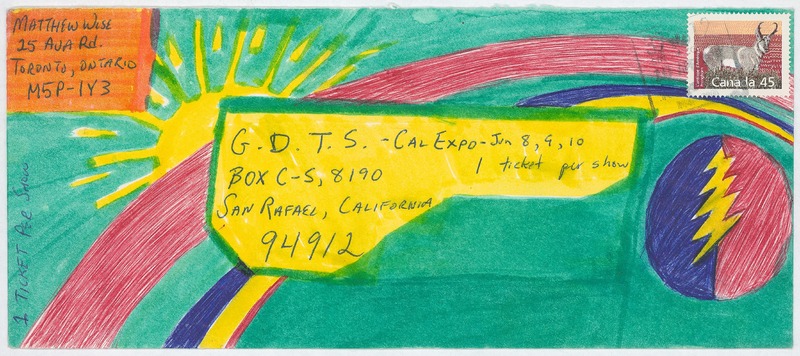 MATTHEW WISE
25 AVA Rd.
TORONTO, ONTARIO
M5P-1Y3
Canada 45
G. D. T. S. - CAL EXPO - Jun 8, 9, 10
1 ticket per show
BOX C-S, 8190
SAN RAFAEL, CALIFORNIA
94912
1 TICKET PER SHOW